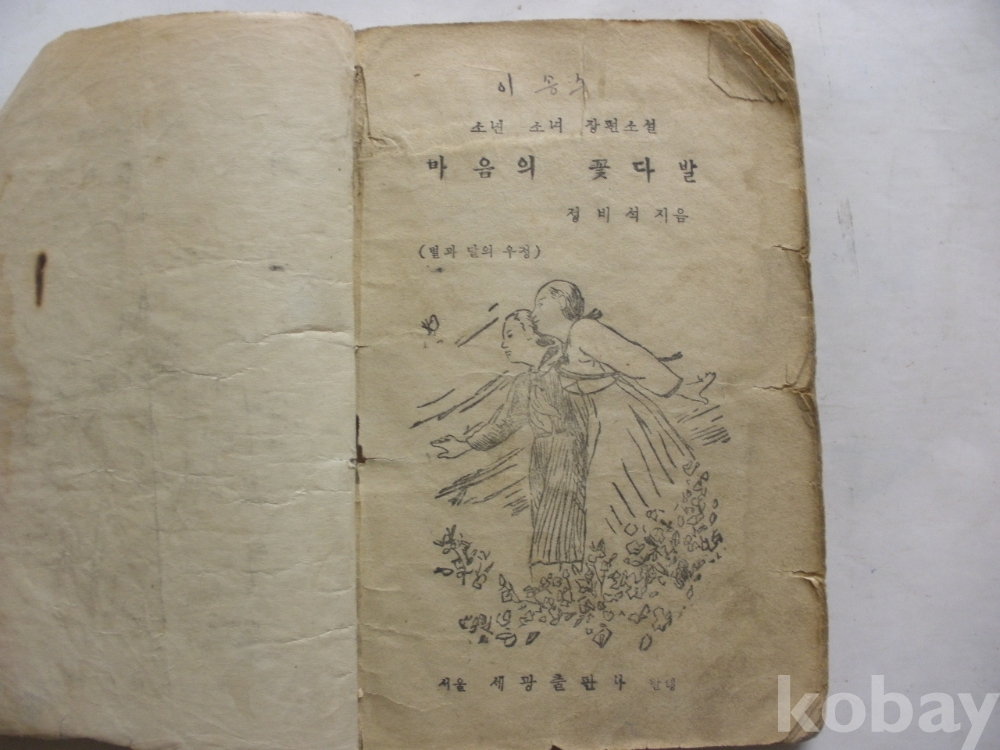 이 송수
소년 소녀 장편소설
마음의 꽃다발
정비석 지음
(별과 달의 우정)
서울 세광출판사 발행
kobay